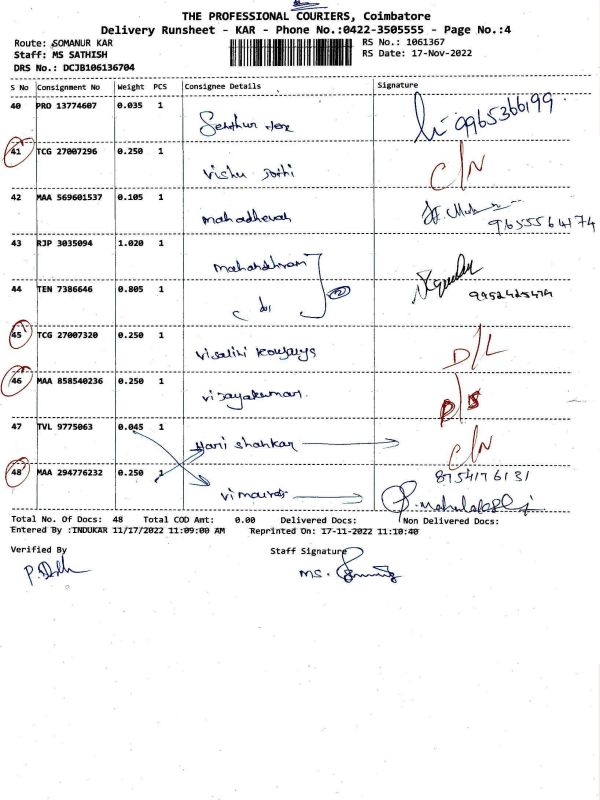 THE PROFESSIONAL COURIERS, Coimbatore
Delivery Runsheet - KAR - Phone No.:0422-3505555 - Page No.:4
Route: SOMANUR KAR
Staff: MS SATHISH
DRS No.: DCJB106136704
RS No.: 1061367
RS Date: 17-Nov-2022
S No Consignment No Weight PCS Consignee Details Signature
40 PRO 13774607 0.035 1
9965366199
41 TCG 27007296 0.250 1 C/N
Vishu Jothi
42 MAA 569601537 0.105 1
mahadhevah
9655564174
43 RJP 3035094 1.020 1
44 TEN 7386646 0.805 1
9952425474
45 TCG 27007320 0.250 1
Visalini D/L
46 MAA 858540236 0.250 1
Vijayakumar
47 TVL 9775063 0.045 1
Hari shankar C/N
48 MAA 294776232 0.250 1 8754176131
Total No. Of Docs: 48 Total COD Amt: 0.00 Delivered Docs: Non Delivered Docs:
Entered By :INDUKAR 11/17/2022 11:09:00 AM Reprinted On: 17-11-2022 11:10:40
Verified By Staff Signature
MS.